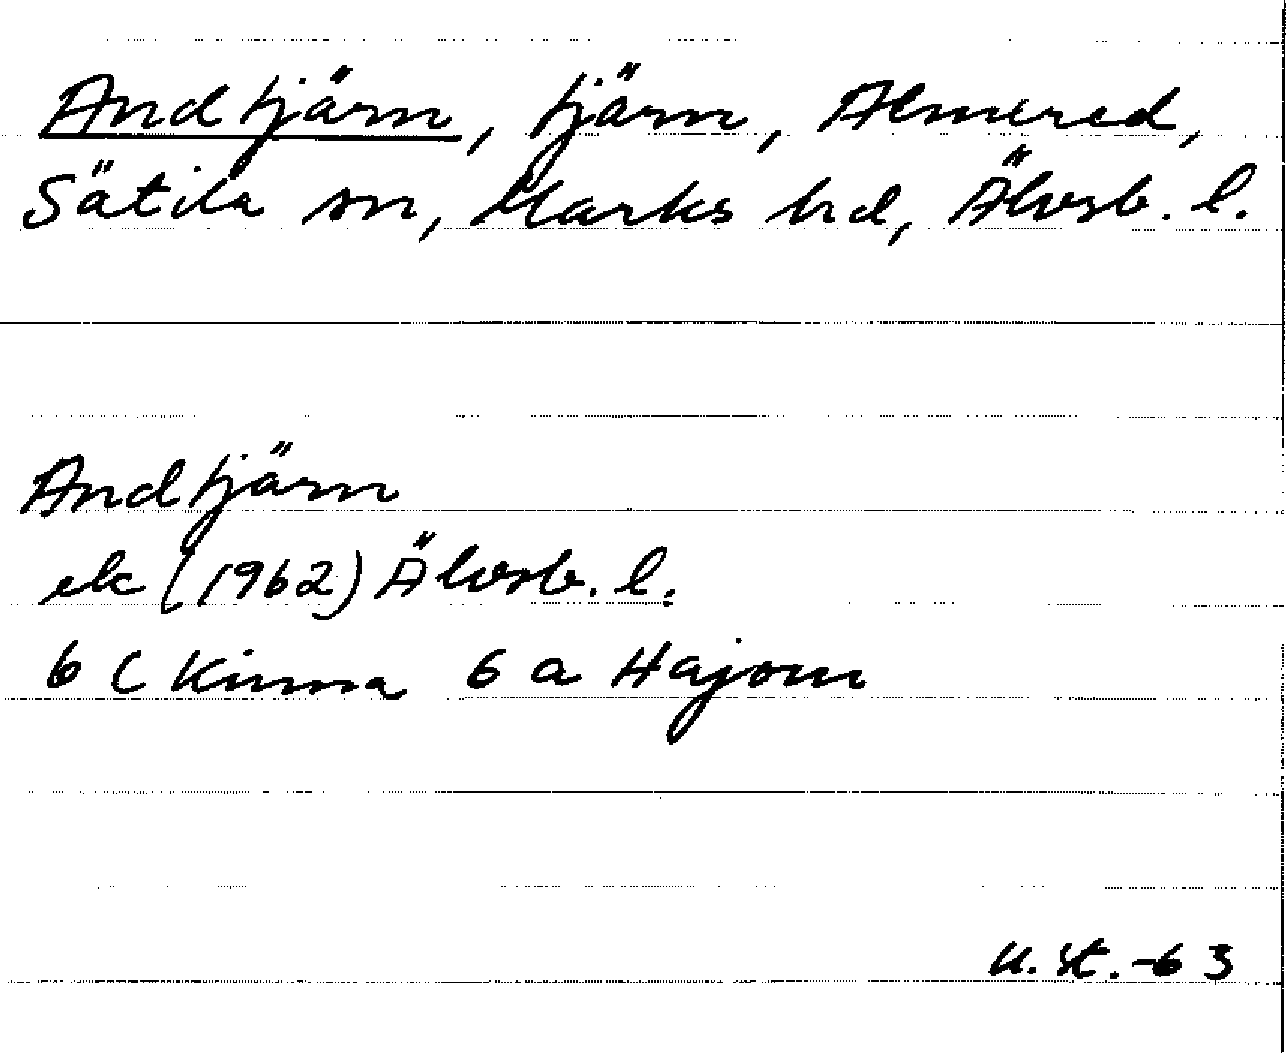 Andtjärn, tjärn, Almered,
Sätila sn, Marks hd, Älvsb. l.
Andtjärn
ek (1962) Älvsb. l.
6 C Kinna 6 a Hajom
U. St. -63